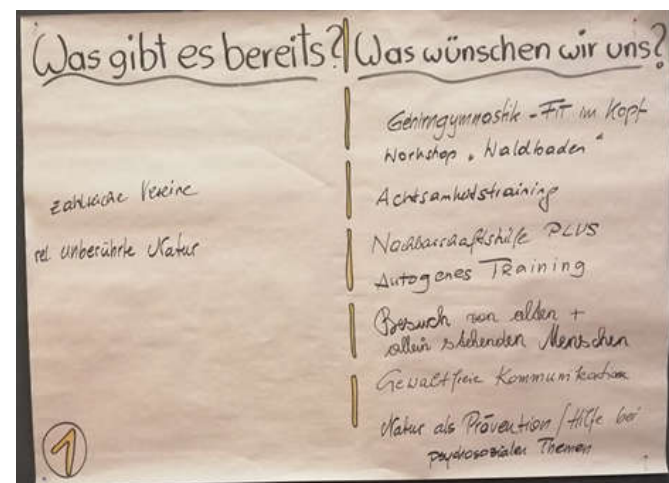 Was gibt es bereits?
zahlreiche Vereine
rel. unberührte Natur
Was wünschen wir uns?
Gehirngymnastik - FiT im Kopf
Workshop „Waldbaden"
Achtsamkeitstraining
Nachbarschaftshilfe PLUS
Autogenes Training
Besuch von alten +
allein stehenden Menschen
Gewaltfreie Kommunikation
Natur als Prävention / Hilfe bei
psychosozialen Themen
1